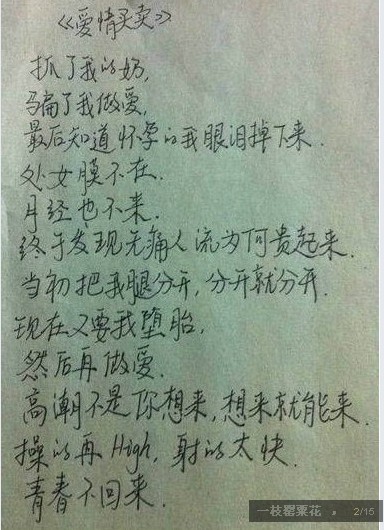 《爱情买卖》
抓了我的奶,
骗了我做爱,
最后知道怀孕的我眼泪掉下来.
处女膜不在.
月经也不来.
终于发现无痛人流为何贵起来.
当初把我腿分开,分开就分开.
现在又要我堕胎,
然后再做爱.
高潮不是你想来,想来就能来.
操的再High,射的太快.
青春不回来.
一枝罂粟花 2/15